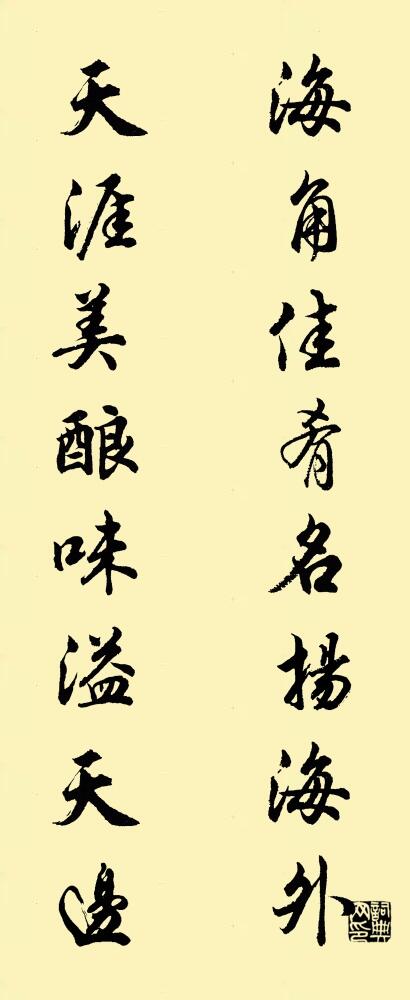 海角佳肴名揚海外
天涯美酿味溢天邊
詞典網印